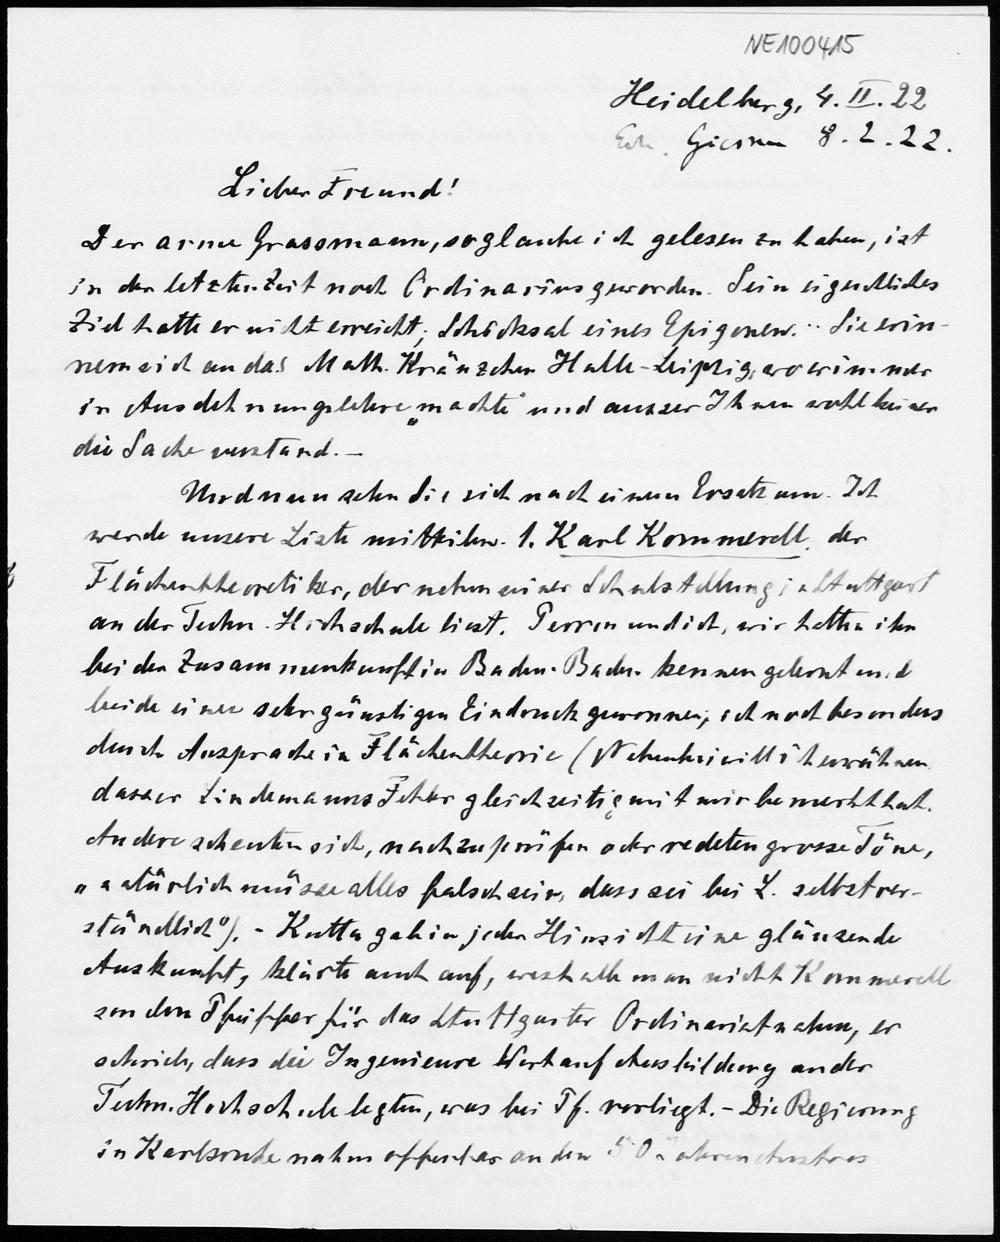 NE100415
Heidelberg, 4. II. 22
Erh. Giessen 8. 2. 22.
Lieber Freund!
Der arme Grassmann, so glaube ich gelesen zu haben, ist
in der letzten Zeit noch Ordinarius geworden. Sein eigentliches
Ziel hatte er nicht erreicht; Schicksal eines Epigonen. Sie erin-
nern sich an das Math. Kränzchen Halle-Leipzig, wo er immer
in Ausdehnungslehre „machte" und ausser Ihnen wohl keiner
die Sache verstand. —
Und nun sehn Sie sich nach einem Ersatz um. Ich
werde unsere Liste mitteilen. 1. Karl Kommerell, der
Flächentheoretiker, der neben einer Schulstellung in Stuttgart
an der Techn. Hochschule liest. Perron und ich, wir hatten ihn
bei der Zusammenkunft in Baden-Baden kennen gelernt und
beide einen sehr günstigen Eindruck gewonnen, ich noch besonders
durch Aussprache in Flächentheorie (Nebenbei will ich erwähnen
dass er Lindemanns Fehler gleichzeitig mit mir bemerkt hat.
Andere scheuten sich, nachzuprüfen oder redeten grosse Töne,
„natürlich müsse alles falsch sein, dass sei bei L. selbstver-
ständlich"). - Kutta gab in jeder Hinsicht eine glänzende
Auskunft, klärte auch auf, weshalb man nicht Kommerell
sondern Pfeiffer für das Stuttgarter Ordinariat nahm, er
schrieb, dass die Ingenieure Wert auf Ausbildung an der
Techn. Hochschule legten, was bei Pf. vorliegt. - Die Regierung
in Karlsruhe nahm offenbar an den 50